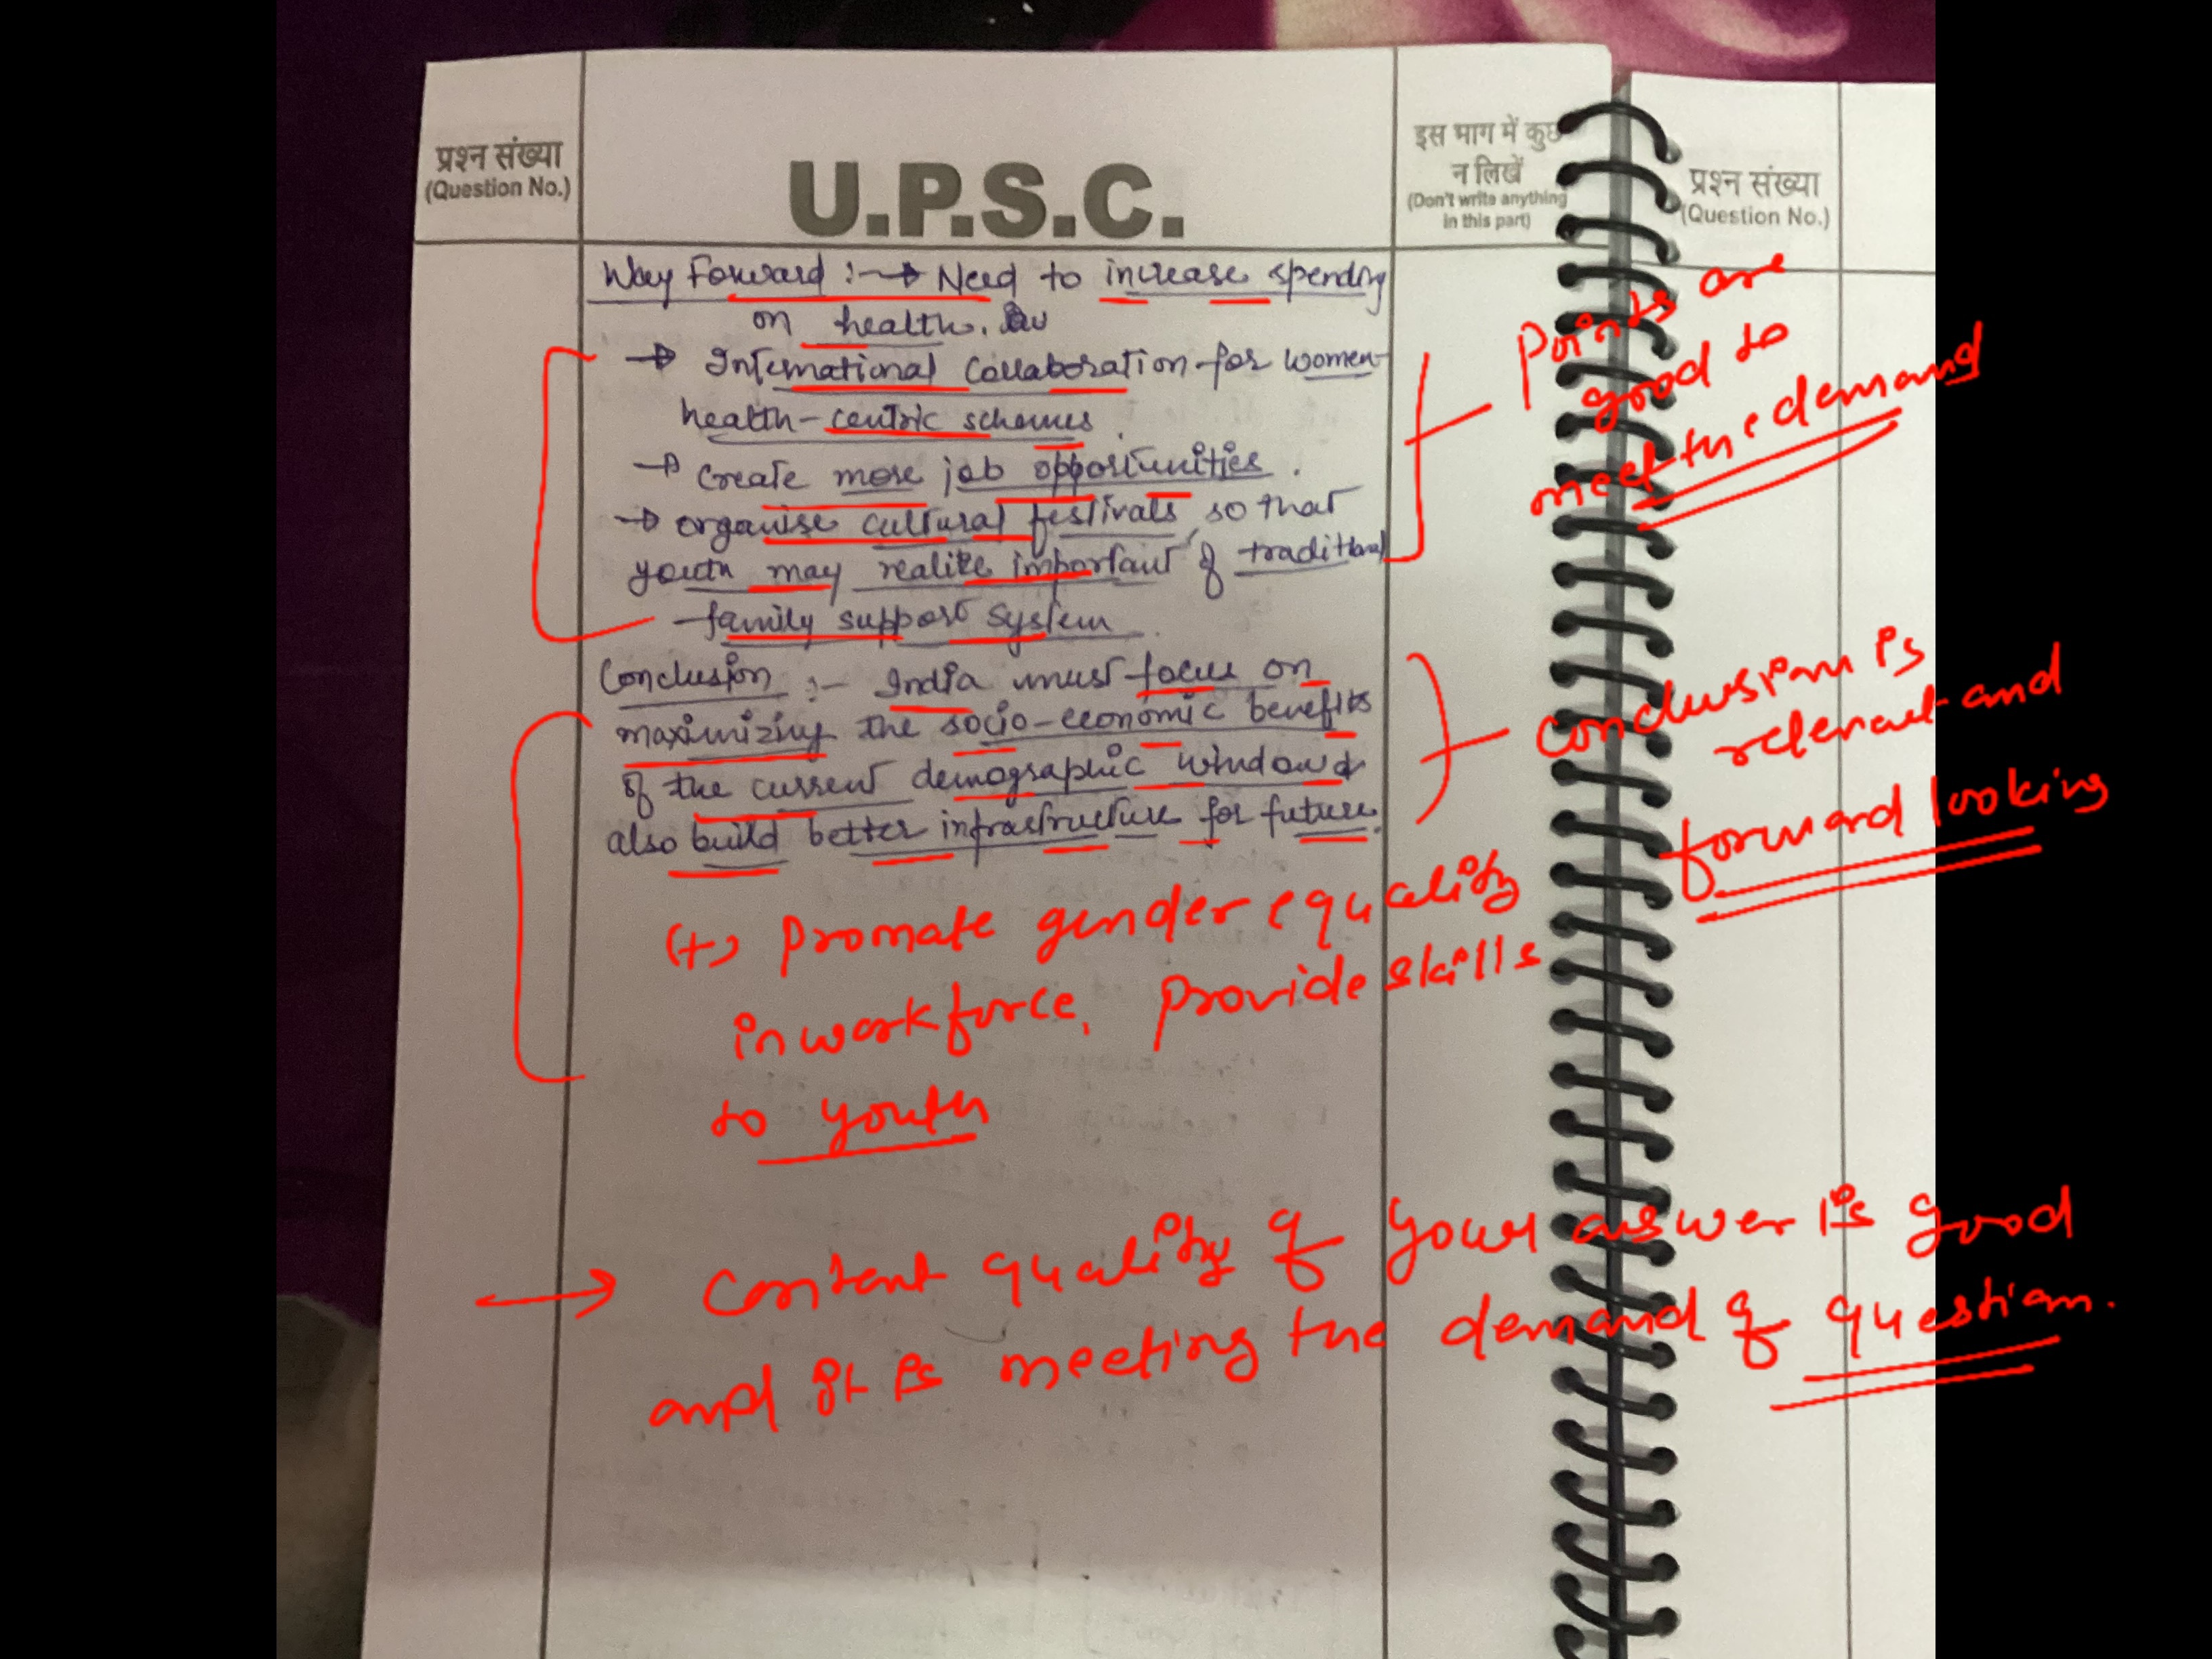 प्रश्न संख्या
(Question No.)
U.P.S.C.
इस भाग में कुछ
न लिखें
(Don't write anything
in this part)
प्रश्न संख्या
(Question No.)
Way Forward :→ Need to increase spending
on health.
→ International Collaboration for women
health-centric schemes.
→ Create more job opportunities.
→ organise cultural festivals so that
youth may realize important of traditional
family support system.
Points are
good to
meet the demand
Conclusion :- India must focus on
maximizing the socio-economic benefits
of the current demographic window &
also build better infrastructure for future.
Conclusion is
relevant and
forward looking
(+) Promote gender equality
in workforce, provide skills
to youth
→ Content quality of your answer is good
and it is meeting the demand of question.